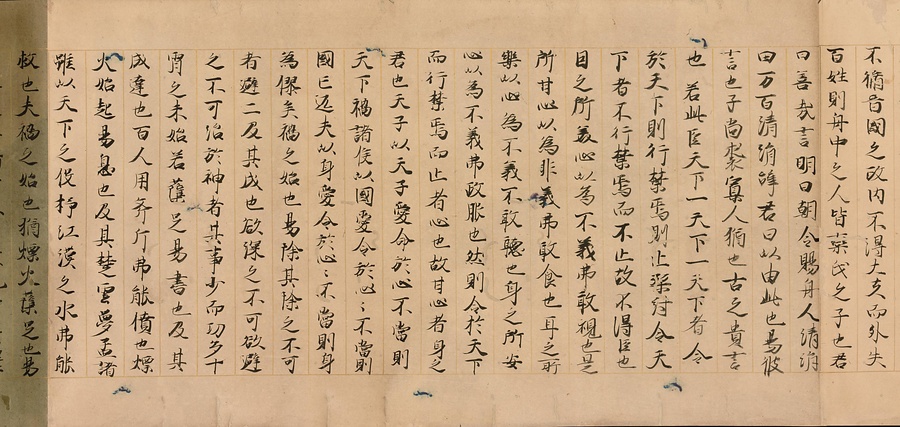 不循晉國之政内不得大夫而外失
百姓則舟中之人皆欒氏之子也君
曰善哉言明日朝令賜舟人清涓
田万百清涓辭君曰以由此也易彼
言也子尚喪寡人猶也古之貴言
也若此臣天下一天下一天下者令
於天下則行禁焉則止桀紂令天
下者不行禁焉而不止故不得臣也
目之所美心以為不義弗敢視也
所甘心以為非義弗敢食也耳之所
樂以心為不義不敢聽也身之所安
心以為不義弗敢服也然則令於天下
而行禁焉而止者心也故甘心者身之
君也天子以天子愛命於心不當則
天下禍諸侯以國愛令於心〻不當則
國亡匹夫以身愛令於心〻不當則身
為僇矣禍之始也易除其除之不可
者避之及其成也欲深之不可欲避
之不可治於神者其事少而功多干
霄之木始若蘖足易書也及其
成達也百人用斧斤弗能僨也熛
火始起易息也及其楚雲夢孟諸
雖以天下之伇抒江漢之水弗能
救也夫禍之始也猶熛火蘖足也易